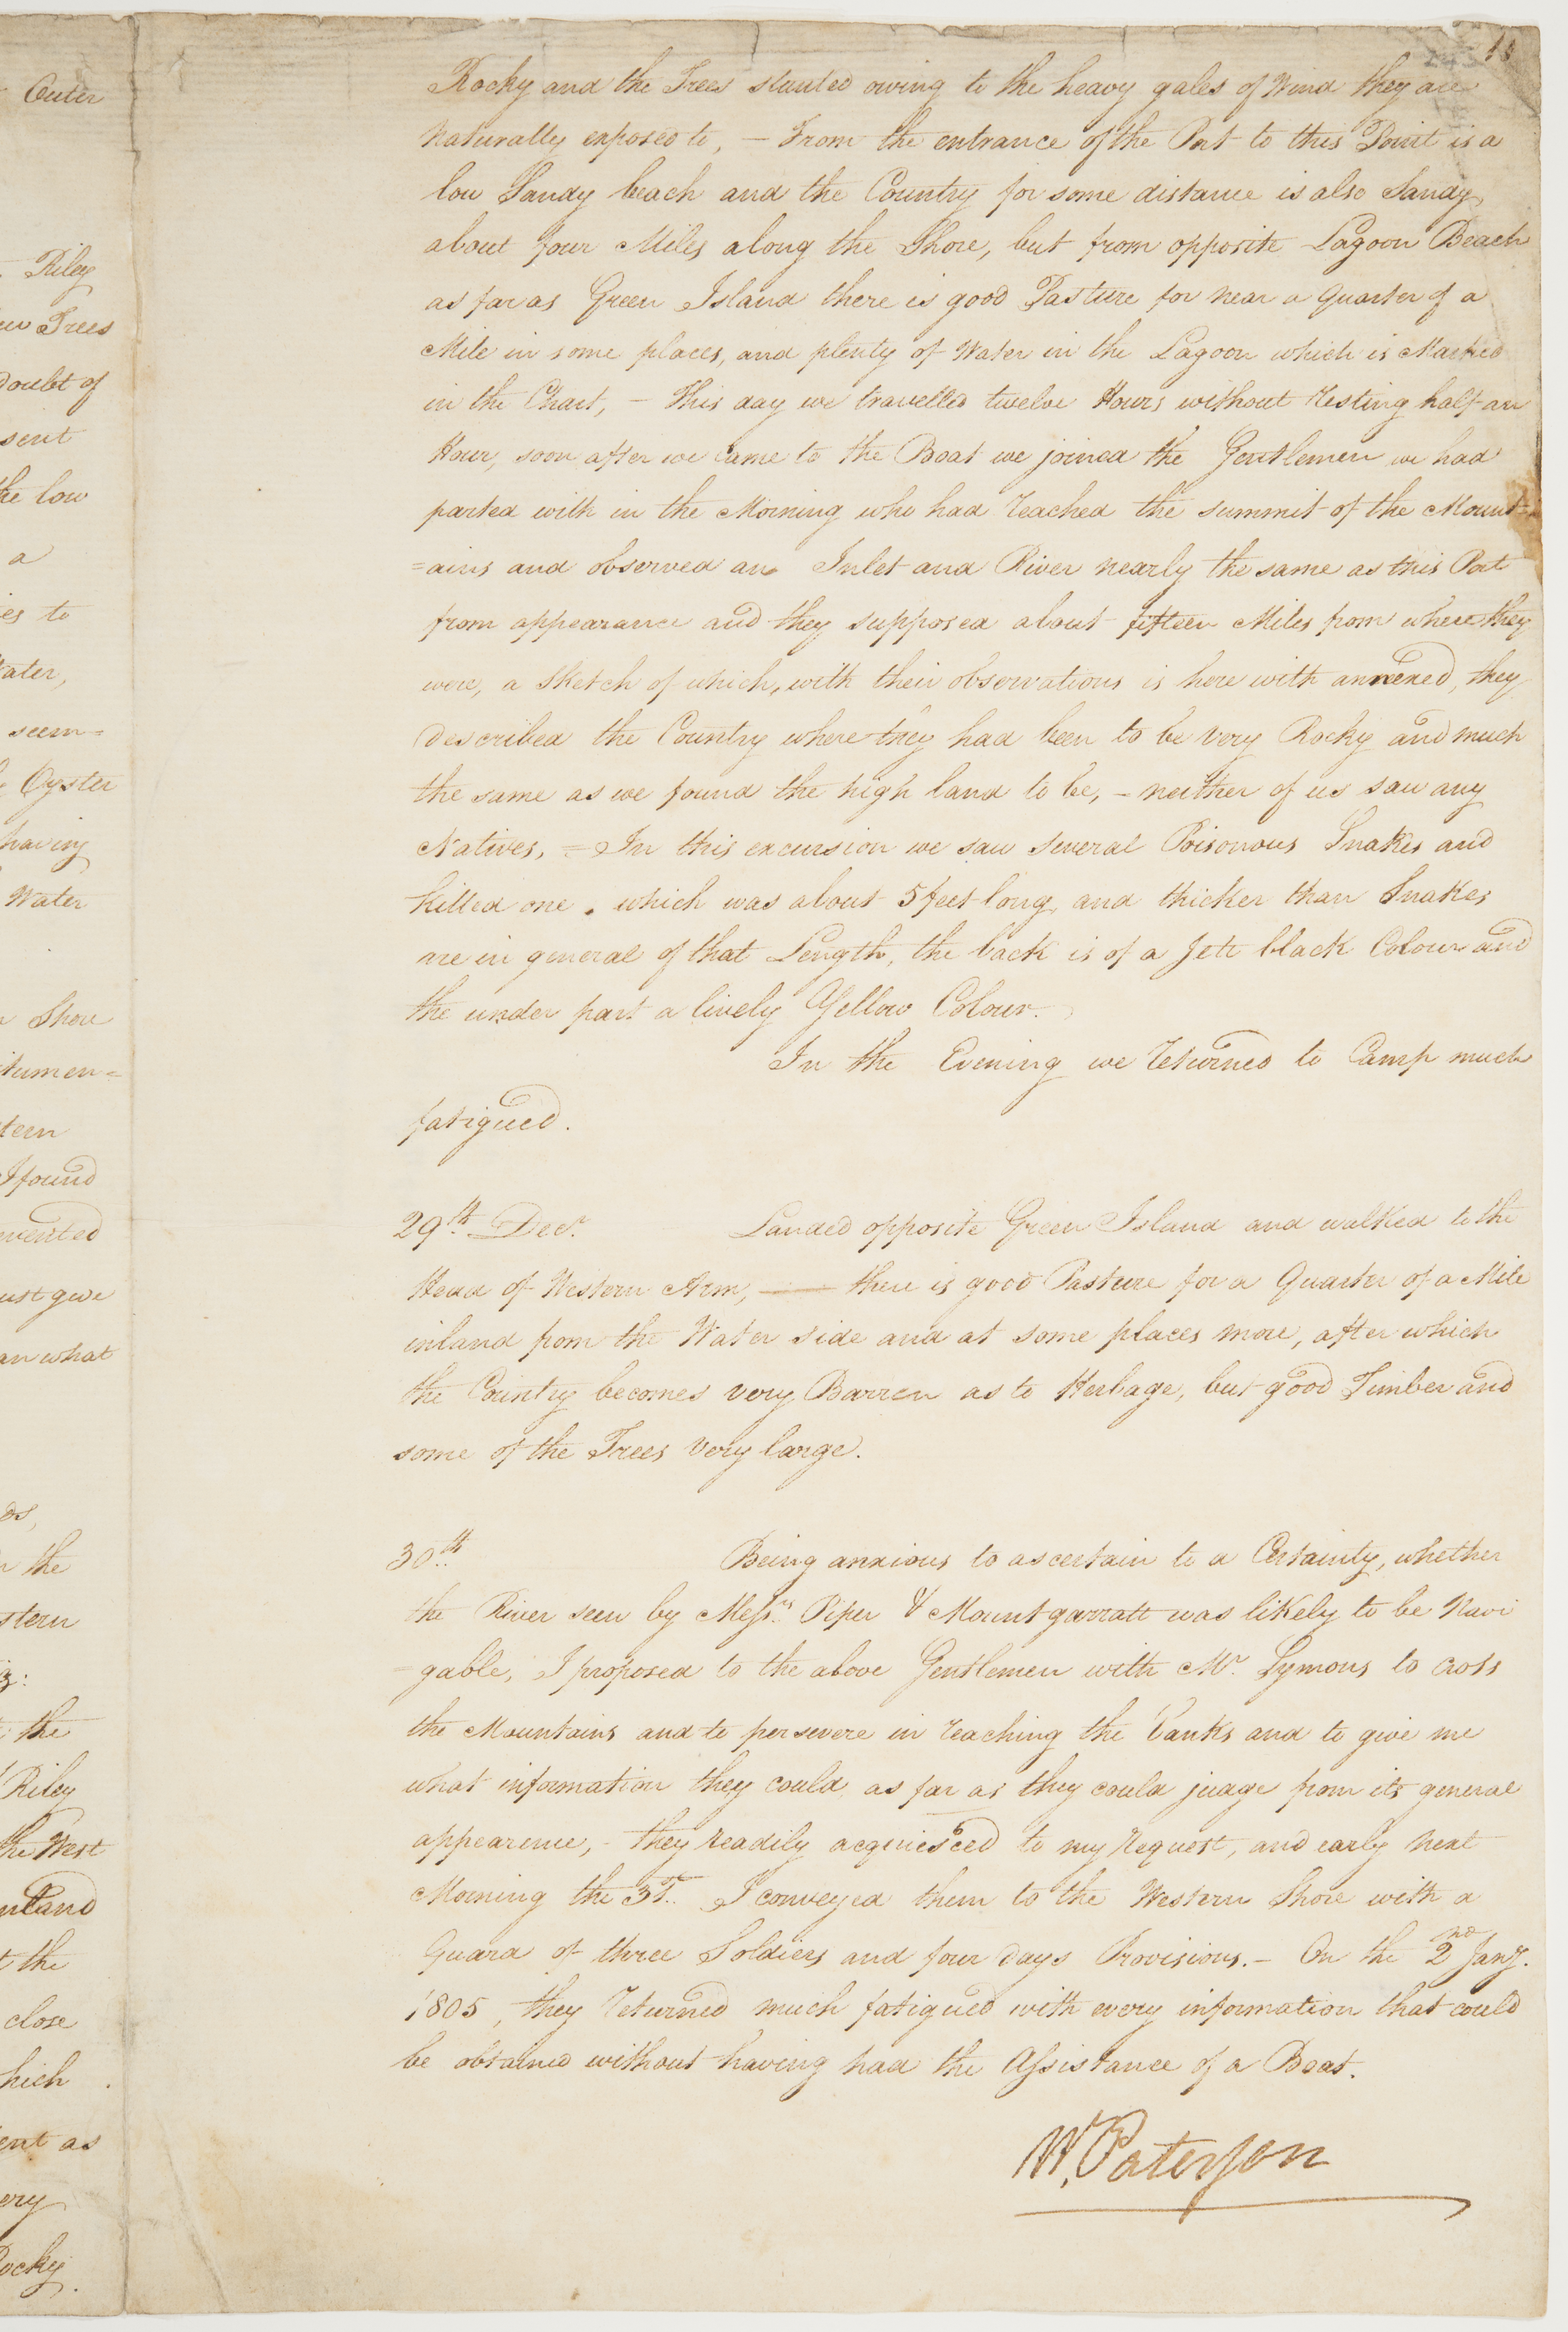 Outer
Riley
Trees
Doubt of
sent
the low
a
to
Water,
seem=
Oyster
having
Water
Shore
tern
I found
just give
an what
the
stern
the
Riley
the West
the
close
hich
ent as
ery
Rocky
Rocky and the Trees stunted owing to the heavy gales of Wind they are
Naturally exposed to, — From the entrance of the Port to this Point is a
low Sandy beach and the Country for some distance is also Sandy,
about four Miles along the Shore, but from opposite Lagoon Beach
as far as Green Island there is good Pasture for near a Quarter of a
Mile in some places, and plenty of Water in the Lagoon which is Marked
in the Chart, — This day we travelled twelve Hours without resting half an
Hour, soon after we came to the Boat we joined the Gentlemen we had
parted with in the Morning who had reached the summit of the Mount=
=ains and observed an Inlet and River nearly the same as this Port
from appearance and they supposed about fifteen Miles from where they
were, a Sketch of which, with their observations is here with annexed, they
described the Country where they had been to be very Rocky and much
the same as we found the high land to be, — neither of us saw any
Natives, = In this excursion we saw several Poisonous Snakes and
killed one, which was about 5 feet long, and thicker than Snakes
are in general of that Length, the back is of a Jett black Colour and
the under part a lively Yellow Colour.
In the Evening we returned to Camp much
fatigued.
29th. Decr. Landed opposite Green Island and walked to the
Head of Western Arm, — there is good Pasture for a Quarter of a Mile
inland from the Water side and at some places more, after which
the Country becomes very Barren as to Herbage, but good Timber and
some of the Trees very large.
30th. Being anxious to ascertain to a Certainty, whether
the River seen by Messrs. Piper & Mountgarratt was likely to be Navi
=gable, I proposed to the above Gentlemen with Mr. Symons to cross
the Mountains and to persevere in reaching the Banks and to give me
what information they could as far as they could judge from its general
appearence, - they readily acquiesced to my request, and early next
Morning the 31st. I conveyed them to the Western Shore with a
Guard of three Soldiers and four days Provisions. — On the 2nd Jany.
1805, they returned much fatigued with every information that could
be obtained without having had the Assistance of a Boat.
W. Paterson